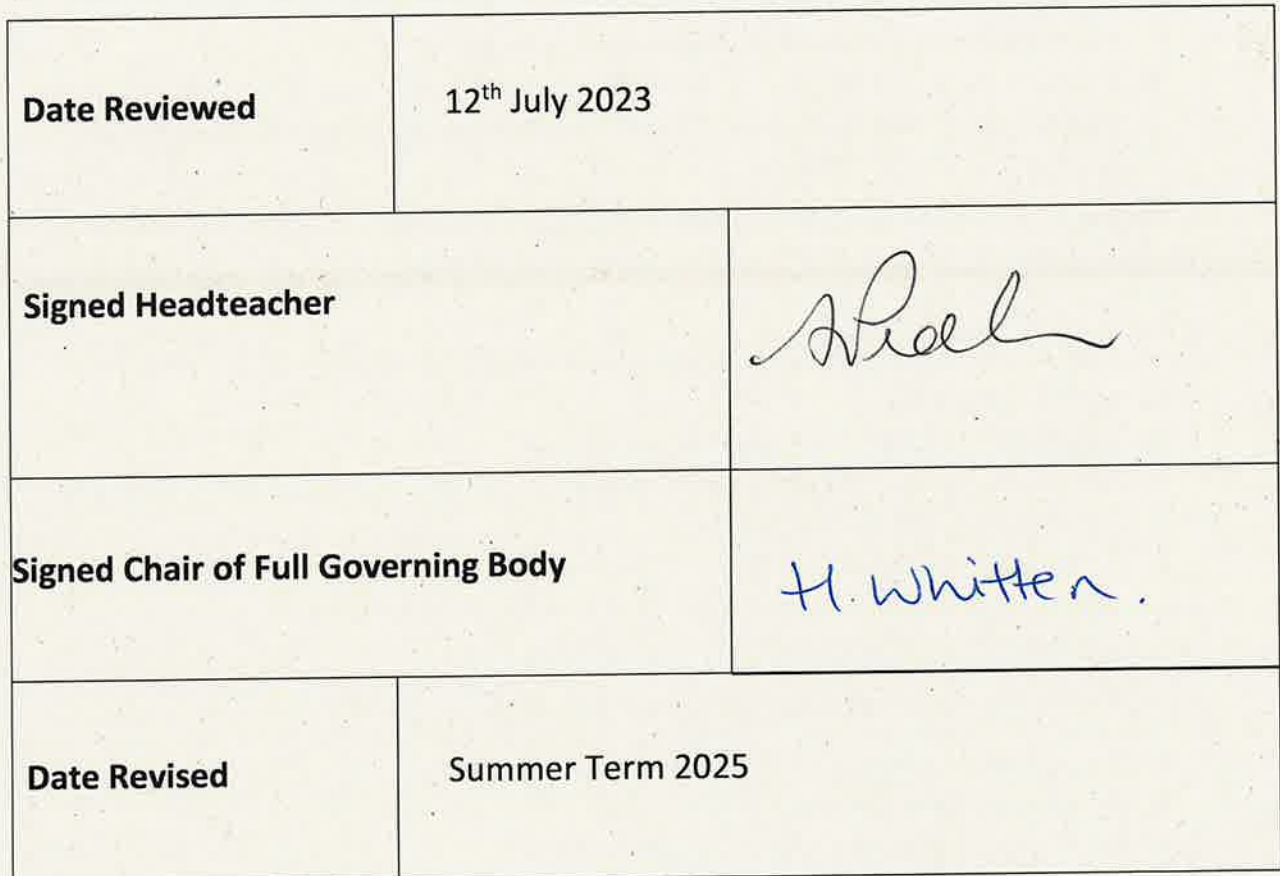 Date Reviewed 12th July 2023
Signed Headteacher
Signed Chair of Full Governing Body H. Whitten.
Date Revised Summer Term 2025